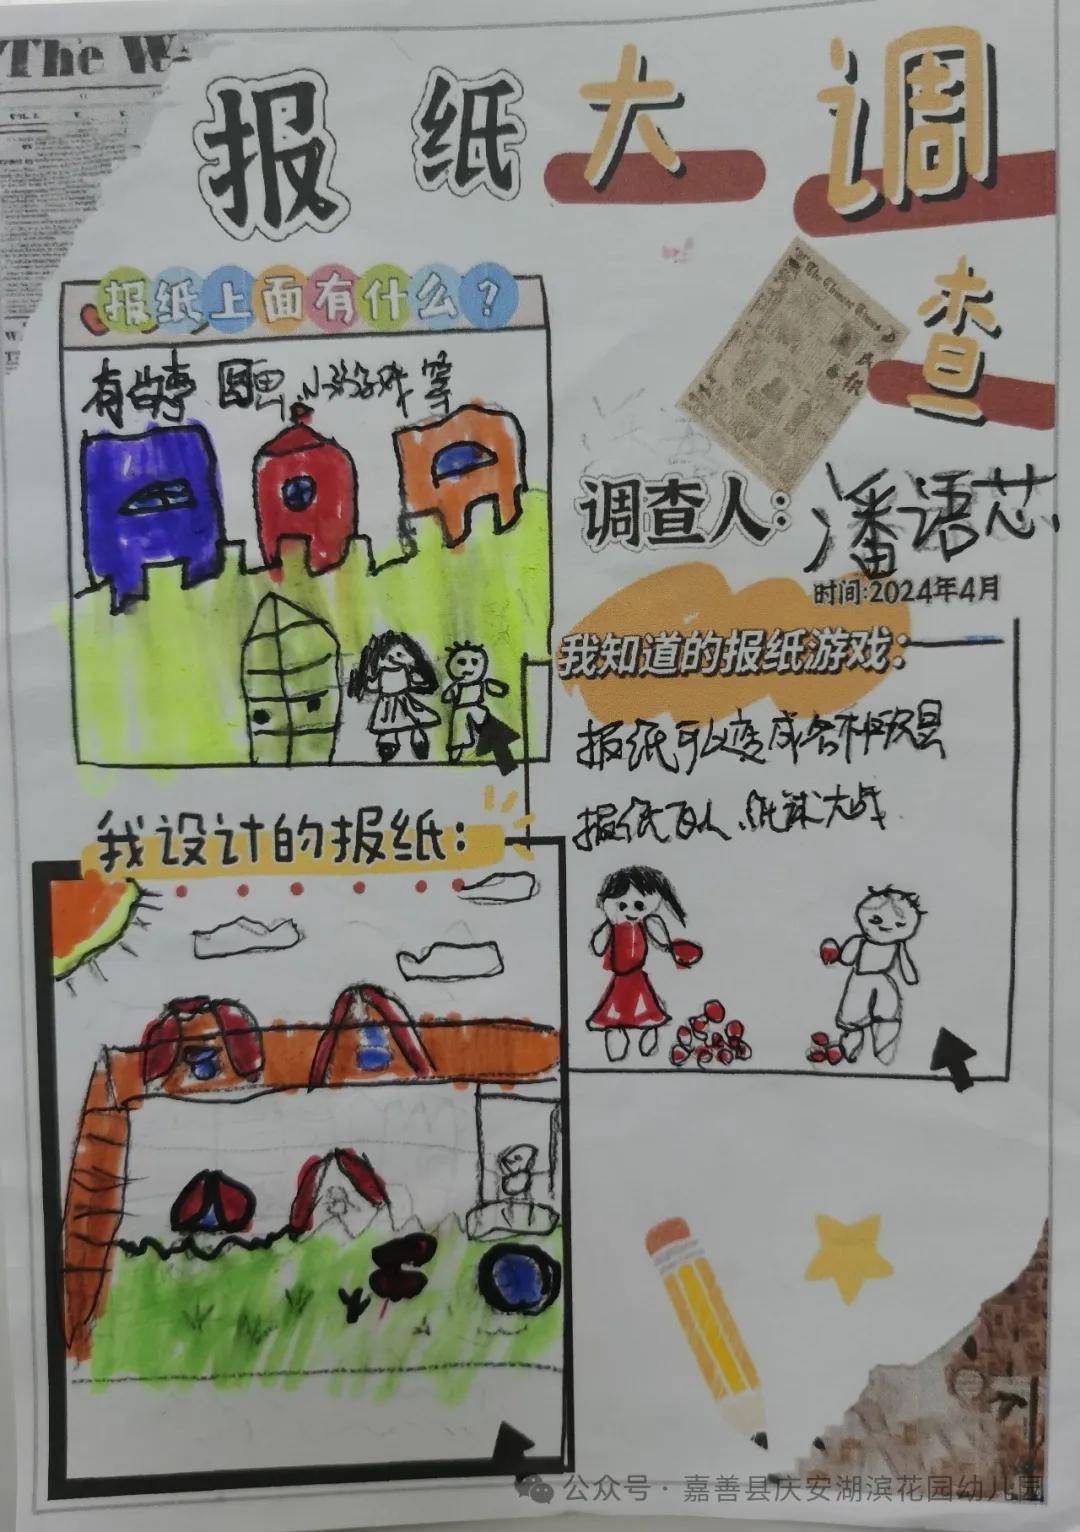 The W
报纸大调查
报纸上面有什么？
有故事 图画 小游戏 等
调查人：潘语芯
时间:2024年4月
我知道的报纸游戏：
报纸可以变成各种玩具
报纸百人、纸球大战
我设计的报纸：
公众号·嘉善县庆安湖滨花园幼儿园